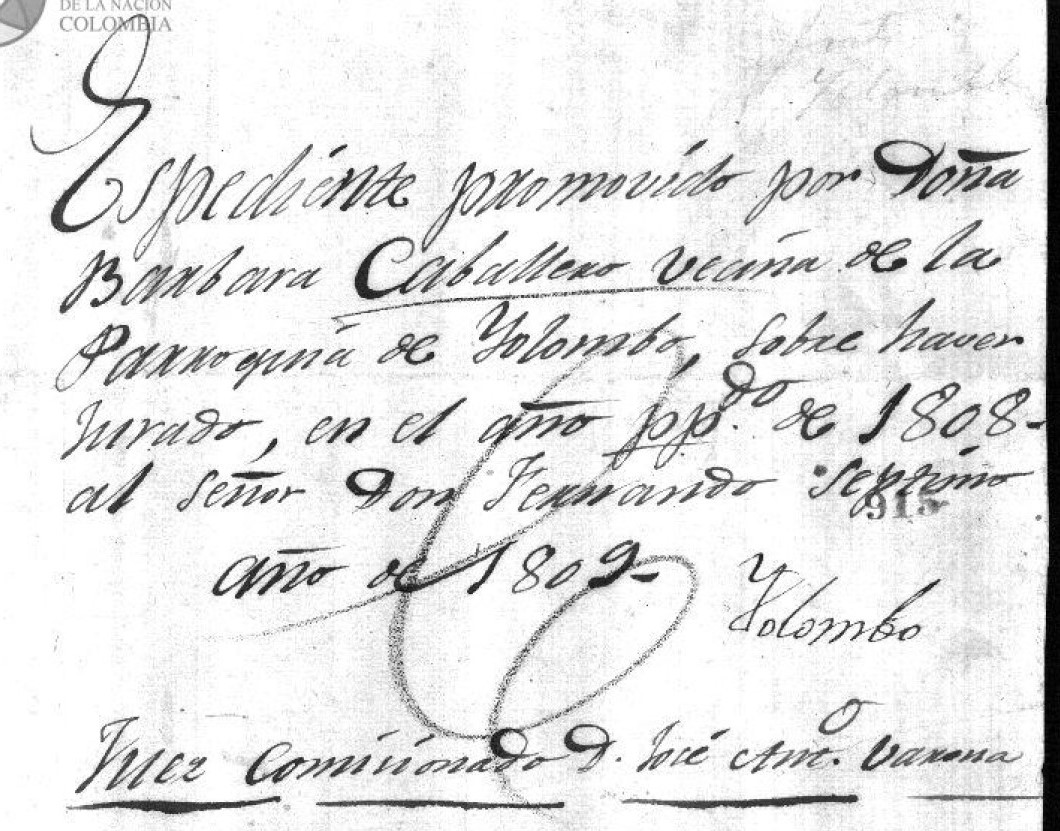 DE LA NACIÓN
COLOMBIA
Espediente promovido por Doña
Barbara Caballero vecina de la
Parroquia de Yolombo, sobre haver
Jurado, en el año pp.do de 1808-
al señor Don Fernando Septimo
915
año de 1809-
Yolombo
Juez Comicionado D. José Anto. Varona